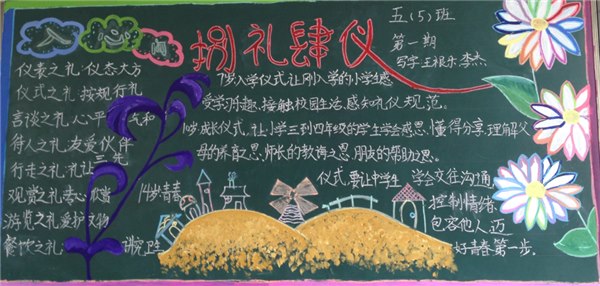 捌礼肆仪
五(5)班
第一期
写字王根乐.李杰
入 心 阁
仪表之礼.仪态大方
仪式之礼.按规行礼
言谈之礼.心平 和
待人之礼.友爱伙伴
行走之礼.礼让 先
观赏之礼
游览之礼.爱护文物
餐饮之礼 讲究卫生
7岁入学仪式.让刚入学的小学生感
受学习乐趣.接触校园生活.感知礼仪规范.
10岁成长仪式.让小学三到四年级的学生学会感恩.懂得分享.理解父
母的养育之恩.师长的教诲之恩.朋友的帮助之恩.
14岁青春
仪式.要让中学生 学会交往沟通
控制情绪
包容他人.迈
好青春第一步.